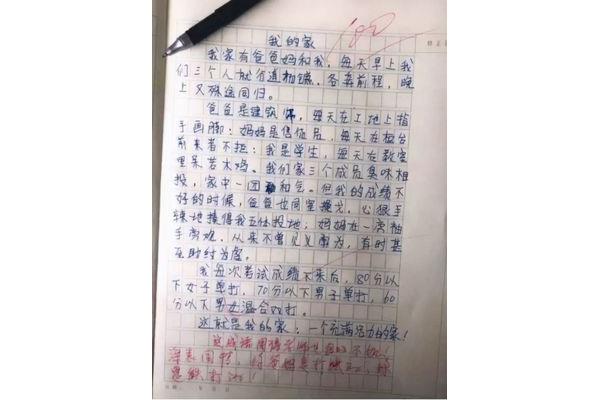 我的家
我家有爸爸妈和我，每天早上我
们三个人就分道扬镳，各奔前程，晚
上又殊途同归。
爸爸是建筑师，每天在工地上指
手画脚；妈妈是售货员，每天在柜台
前来者不拒；我是学生，每天在教室
里呆若木鸡。我们家三个成员臭味相
投，家中一团和气。但我的成绩不
好的时候，爸爸也同室操戈，心狠手
辣地揍得我五体投地，妈妈在一旁袖
手旁观，从来不曾见义勇为，有时甚
至助纣为虐。
我每次考试成绩下来后，80分以
下女子单打，70分以下男子单打，60
分以下男女混合双打。
这就是我的家，一个充满活力的家！
这成语用得
深表同情，